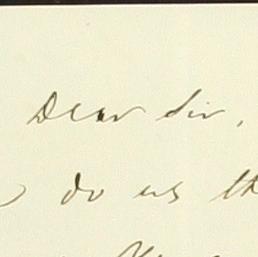 Dear Sir,
do us th